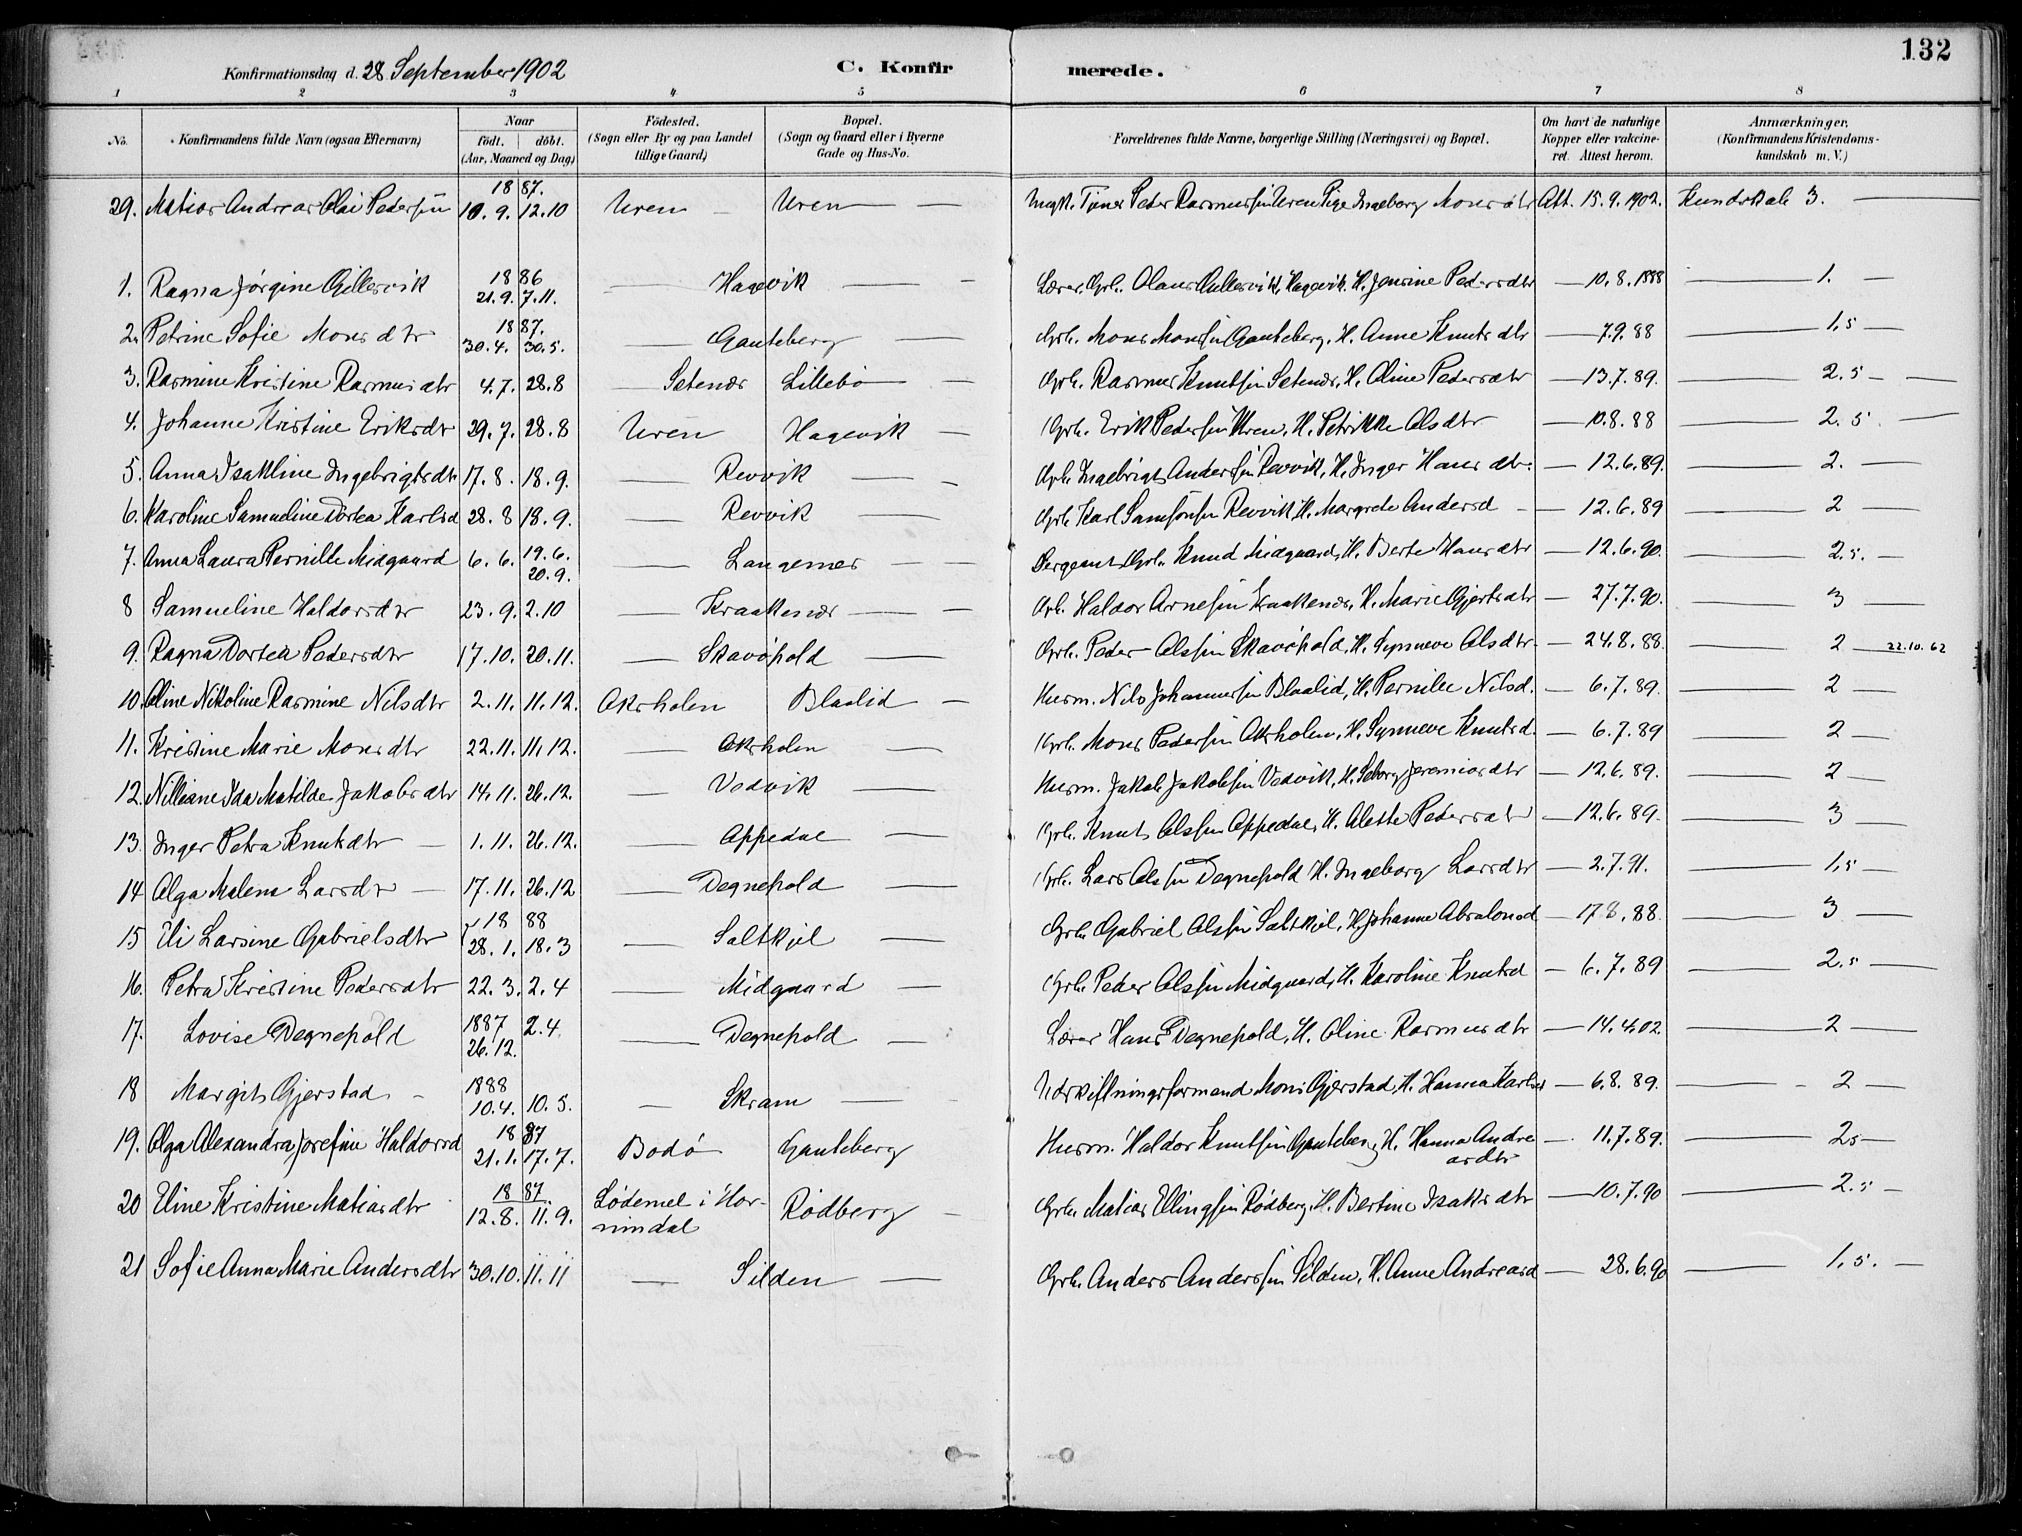 132
Konfirmationsdag d. 28 September 1902 C. Konfirmerede.
1 2 3 4 5 6 7 8
No. Konfirmandens fulde Navn (ogsaa Efternavn) Naar födt. döbt. (Aar, Maaned og Dag) Födested. (Sogn eller By og paa Landet tillige Gaard) Bopæl. (Sogn og Gaard eller i Byerne Gade og Hus-No. Forældrenes fulde Navne, borgerlige Stilling (Næringsvei) og Bopæl. Om havt de naturlige Kopper eller vakcineret. Attest herom. Anmærkninger. (Konfirmandens Kristendomskundskab m. V.)
29. Matias Andreas Olai Pedersen 1887. 10.9. 12.10 Uren – Uren — Ungk. Tjener Peder Rasmussen Uren Pige Ingeborg Monsdtr Att. 15.9.1902. Kundskab 3. —
1. Ragna Jørgine Gillesvik 1886 21.9. 7.11. — Hagevik — Lærer, Grb. Olaus Gillesvik, Hagevik. H. Jensine Pedersdtr — 10.8.1888 — 1. —
2. Petrine Sofie Monsdtr 1887. 30.4. 30.5. — Gauteberg — Grb. Mons Monssen Gauteberg, H. Anne Knutsdtr — 7.9.88 — 1,5 —
3. Rasmine Kristine Rasmusdtr 4.7. 28.8 — Setenes Lillebø — Grb. Rasmus Knutsen Setenes, H. Oline Pedersdtr — 13.7.89. — 2.5 —
4. Johanne Kristine Eriksdtr 29.7. 28.8 Uren Hagevik — Grb. Erik Pedersen Uren, H. Petrikke Olsdtr — 10.8.88 — 2.5 —
5. Anna Isakline Ingebrigtsdtr 17.8. 18.9. — Revvik — Grb. Ingebrigt Andersen Revvik, H. Inger Hansdtr. — 12.6.89. — 2. —
6. Karoline Samueline Dortea Karlsd 28.8 18.9. — Revvik — Grb. Karl Samsonsen Revvik, H. Margrete Andersd — 12.6.89 — 2 —
7. Anna Laura Pernille Midgaard 6.6. 19.6. 20.9. — Langenes — Sergeant, Grb. Knud Midgaard, H. Berte Hansdtr — 12.6.90. — 2.5. —
8 Samueline Haldorsdtr 23.9. 2.10 — Kraakenes — Grb. Haldor Arnesen Kraakenes, H. Marie Gjertsdtr — 27.7.90. — 3 —
9. Ragna Dortea Pedersdtr 17.10. 20.11. — Skavøpold — Grb. Peder Olssen Skavøpold, H. Synneve Olsdtr. — 24.8.88. — 2 — 22.10.62
10. Oline Nikoline Rasmine Nilsdtr 2.11. 11.12. Oksholen Blaalid — Husm. Nils Johannessen Blaalid, H. Pernille Nilsd. — 6.7.89. — 2 —
11. Kristine Marie Monsdtr 22.11. 11.12. — Oksholen — Grb. Mons Pedersen Oksholen, H. Synneve Knutsd. — 6.7.89 — 2 —
12. Nilliane Ida Matilde Jakobsdtr 14.11. 26.12. — Vedvik — Husm. Jakob Jakobsen Vedvik, H. Seborg Jeremiasdtr — 12.6.89. — 2 —
13. Inger Petra Knutsdtr — 1.11. 26.12. — Oppedal — Grb. Knut Olssen Oppedal, H. Alette Pedersdtr — 12.6.89. — 3 —
14 Olga Malena Larsdtr — 17.11. 26.12 — Degnepold — Grb. Lars Olssen Degnepold H. Ingeborg Larsdtr — 2.7.91. — 1,5 —
15 Eli Larsine Gabrielsdtr 1888 28.1. 18.3 — Saltkjel — Grb. Gabriel Olssen Saltkjel, H. Johanne Absalonsd — 17.8.88. — 3 —
16. Petra Kristine Pedersdtr 22.3. 2.4 — Midgaard — Grb. Peder Olssen Midgaard, H. Karoline Knutsd — 6.7.89 — 2.5 —
17. Lovise Degnepold 1887 26.12. 2.4. — Degnepold — Lærer Hans Degnepold, H. Oline Rasmusdtr — 14.4.02 — 2 —
18 Margit Gjerstad 1888 10.4. 10.5. — Skram — Udskiftningsformand Mons Gjerstad H. Hanna Karlsd — 6.8.89. — 2 —
19. Olga Alexandra Josefine Haldorsd 1887 21.1. 17.7. Bodø Gauteberg Husm. Haldor Knutsen Gauteberg, H. Hanna Andreasdtr — 11.7.89. — 2.5 —
20 Eline Kristine Matiasdtr 1887 12.8. 11.9. Lødemel i Hornindal Rødberg — Grb. Matias Ellingsen Rødberg, H. Bertine Isaksdtr — 10.7.90 — 2.5 —
21 Sofie Anna Marie Andersdtr 30.10. 11.11 — Silden — Grb. Anders Anderssen Silden, H. Anne Andreasd — 28.6.90 — 1,5. —